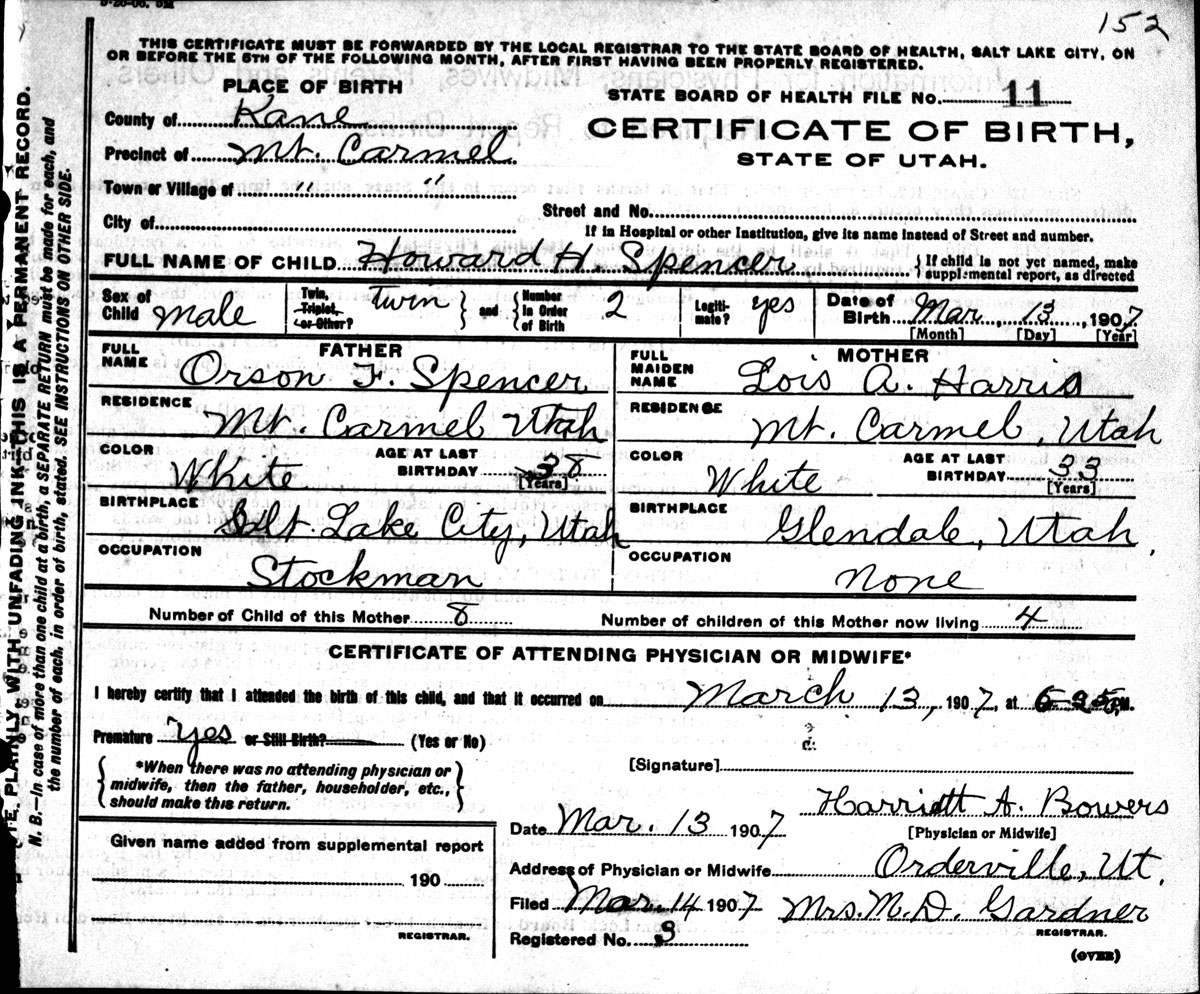 152
THIS CERTIFICATE MUST BE FORWARDED BY THE LOCAL REGISTRAR TO THE STATE BOARD OF HEALTH, SALT LAKE CITY, ON
OR BEFORE THE 5TH OF THE FOLLOWING MONTH, AFTER FIRST HAVING BEEN PROPERLY REGISTERED.
PLACE OF BIRTH
STATE BOARD OF HEALTH FILE No. 11
County of Kane
CERTIFICATE OF BIRTH,
Precinct of Mt. Carmel
STATE OF UTAH.
Town or Village of " "
Street and No.
City of
If in Hospital or other Institution, give its name instead of Street and number.
FULL NAME OF CHILD Howard H. Spencer { If child is not yet named, make supplemental report, as directed
Sex of Child Male Twin, Triplet, or Other? twin } and { Number in Order of Birth 2 Legitimate? yes Date of Birth Mar. 13, 1907
[Month] [Day] [Year]
FATHER
FULL NAME Orson F. Spencer
RESIDENCE Mt. Carmel Utah
COLOR White AGE AT LAST BIRTHDAY 38
[Years]
BIRTHPLACE Salt Lake City, Utah
OCCUPATION Stockman
MOTHER
FULL MAIDEN NAME Lois A. Harris
RESIDENCE Mt. Carmel, Utah
COLOR White AGE AT LAST BIRTHDAY 33
[Years]
BIRTHPLACE Glendale, Utah.
OCCUPATION None
Number of Child of this Mother 8 Number of children of this Mother now living 4
CERTIFICATE OF ATTENDING PHYSICIAN OR MIDWIFE*
I hereby certify that I attended the birth of this child, and that it occurred on March 13, 1907, at 6-25 P.M.
Premature yes or Still Birth? (Yes or No)
[Signature]
{ *When there was no attending physician or
midwife, then the father, householder, etc.,
should make this return. }
Harriett A. Bowers
Date Mar. 13 1907 [Physician or Midwife]
Given name added from supplemental report
190
REGISTRAR.
Address of Physician or Midwife Orderville, Ut.
Filed Mar. 14 1907 Mrs. M. D. Gardner
REGISTRAR.
Registered No. 3
(OVER)
PLAINLY, WITH UNFADING INK—THIS IS A PERMANENT RECORD.
N. B.—In case of more than one child at a birth, a SEPARATE RETURN must be made for each, and
the number of each, in order of birth, stated. SEE INSTRUCTIONS ON OTHER SIDE.